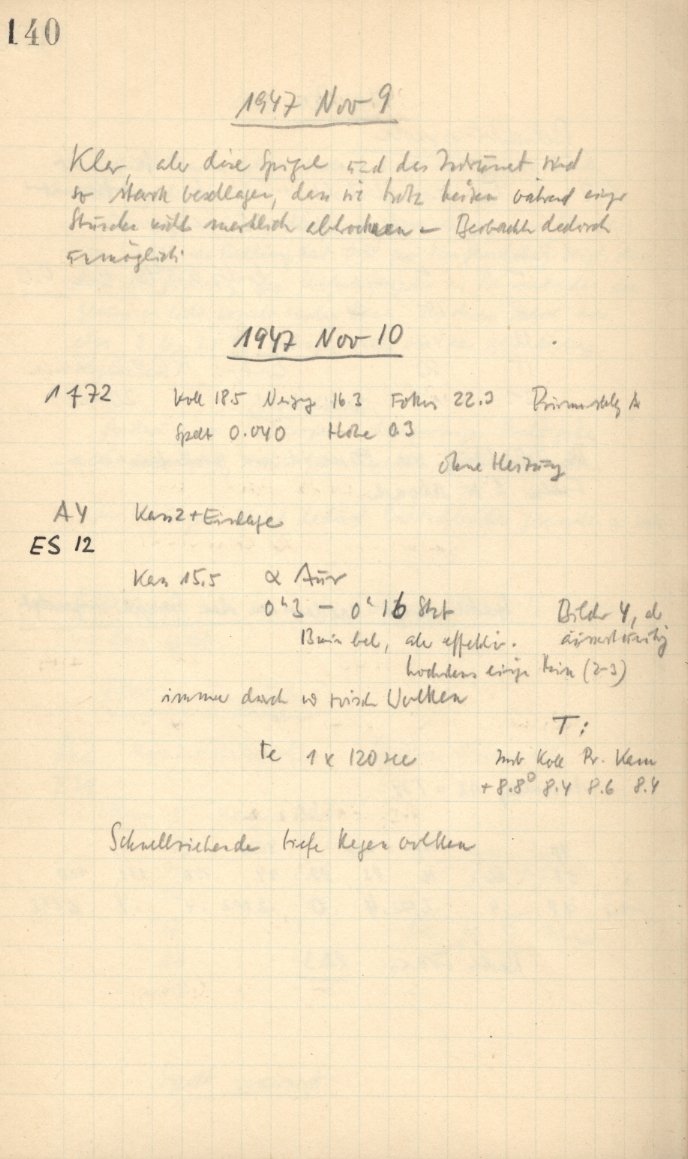 140
1947 Nov 9
Klar, aber die Spiegel und das Instrument sind
so stark beschlagen, dass sie trotz heizen während einige
Stunden nicht merklich abtrocknen – Beobachten dadurch
unmöglich
1947 Nov 10
1472 Koll 18.5 Neigg 16.3 Fokus 22.3
Spalt 0.040 Höhe 0.3
ohne Heizung
A4 Kam 2 +
ES 12
Kam 15.5 α Aur
0h3 – 0h16 Bilder 4,
13 min bel, aber effektiv. unruhig
höchstens einige Min (2-3)
immer durch Wolken
T:
te 1 x 120 sec Inst Koll Pr. Kam
+8.8° 8.4 8.6 8.4
Schnellziehende tiefe Regenwolken